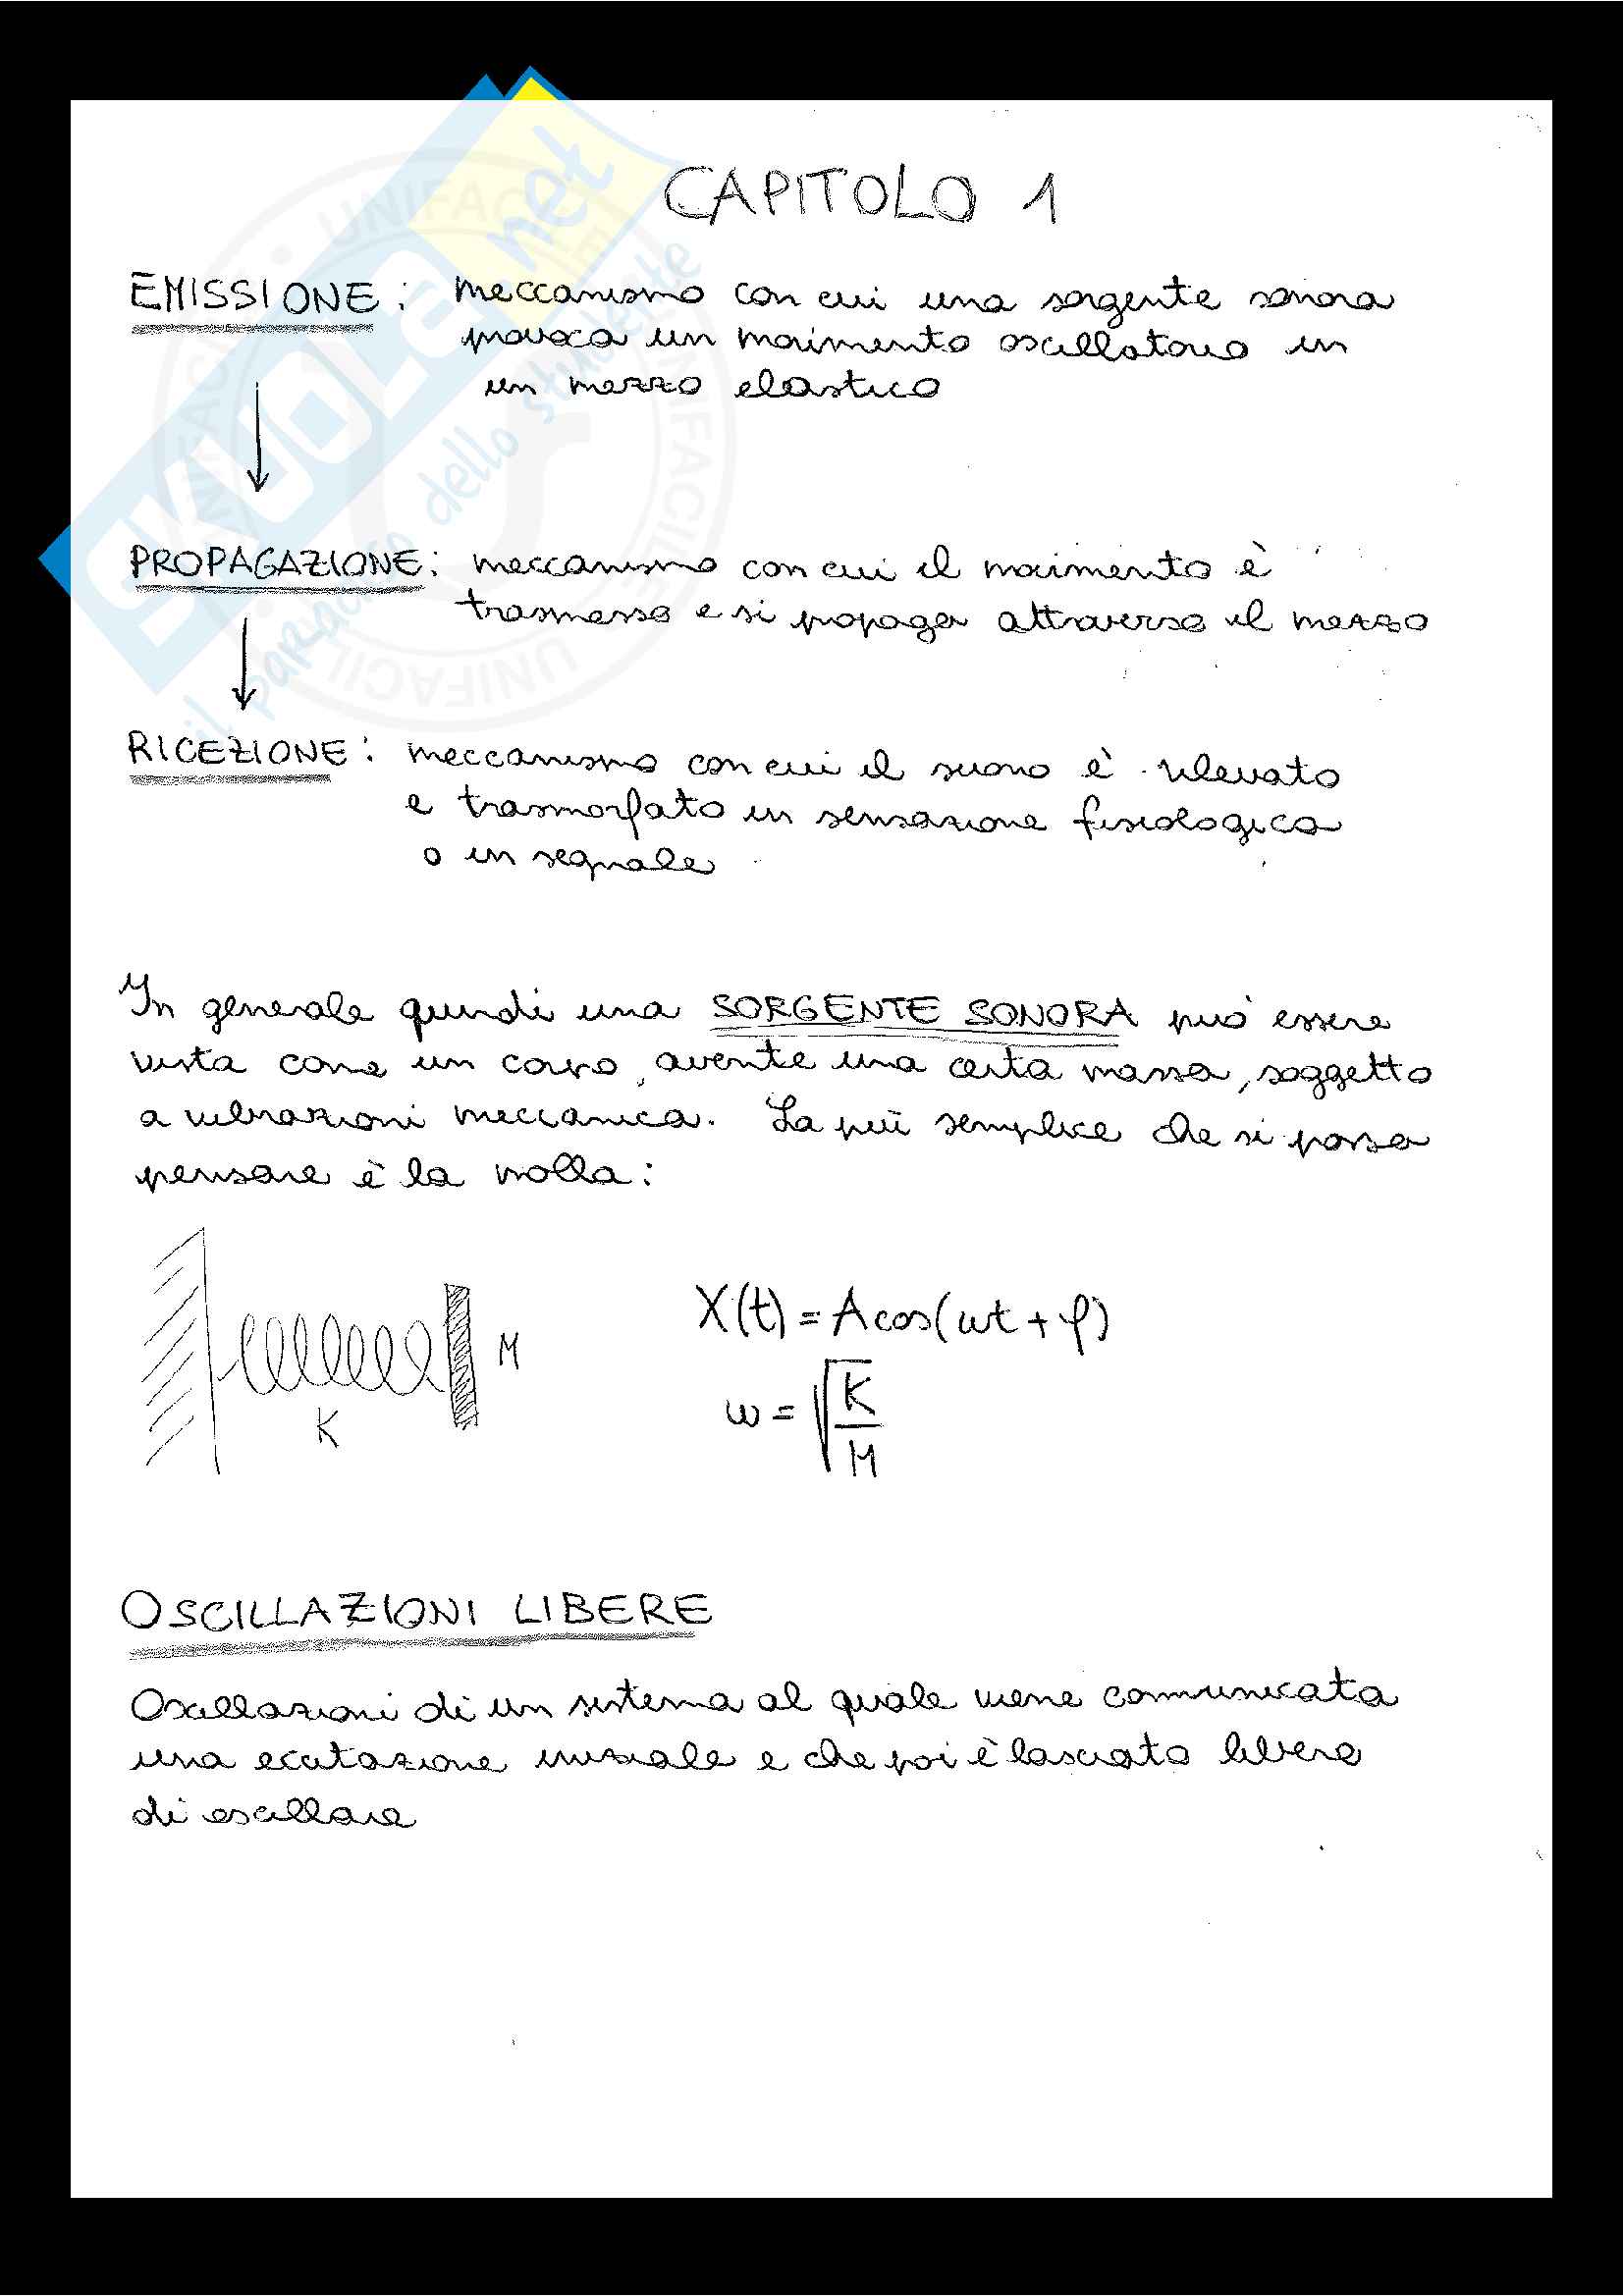 CAPITOLO 1
EMISSIONE: meccanismo con cui una sorgente sonora
provoca un movimento oscillatorio in
un mezzo elastico
PROPAGAZIONE: meccanismo con cui il movimento è
trasmesso e si propaga attraverso il mezzo
RICEZIONE: meccanismo con cui il suono è rilevato
e trasmorfato in sensazione fisiologica
o in segnale
In generale quindi una SORGENTE SONORA può essere
vista come un corpo, avente una certa massa, soggetto
a vibrazioni meccanica. La più semplice che si possa
pensare è la molla:
X(t) = A cos(ωt + φ)
M
K
ω = √K/M
OSCILLAZIONI LIBERE
Oscillazioni di un sistema al quale viene comunicata
una eccitazione iniziale e che poi è lasciato libero
di oscillare
SKUOLA.net
il paradiso dello studente
UNIFACILE